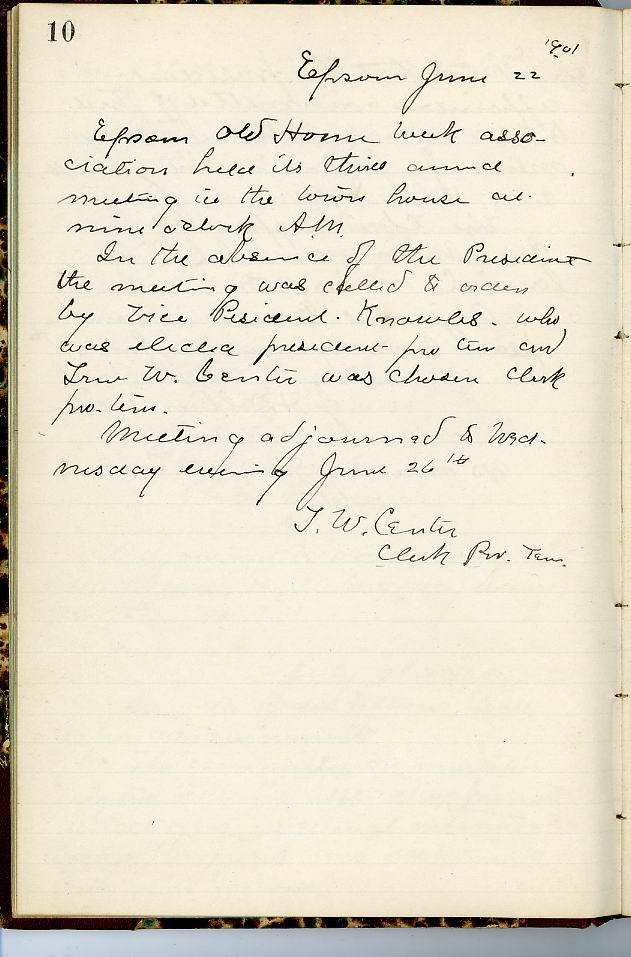 10
1901
Epsom June 22
Epsom Old Home Week asso-
ciation held its third annual
meeting in the town house at
nine o'clock A.M.
In the absence of the President
the meeting was called to order
by Vice Pesident. Knowles. who
was elected president pro tem and
W. Center was chosen Clerk
pro. tem.
Meeting adjourned to Wed-
nesday evening June 26th
W. Center
Clerk Pro. Tem.